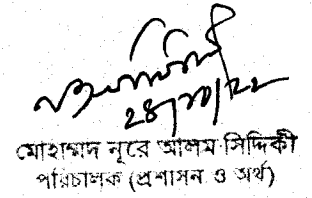 ২৪/১০/২২
মোহাম্মদ নূরে আলম সিদ্দিকী
পরিচালক (প্রশাসন ও অর্থ)